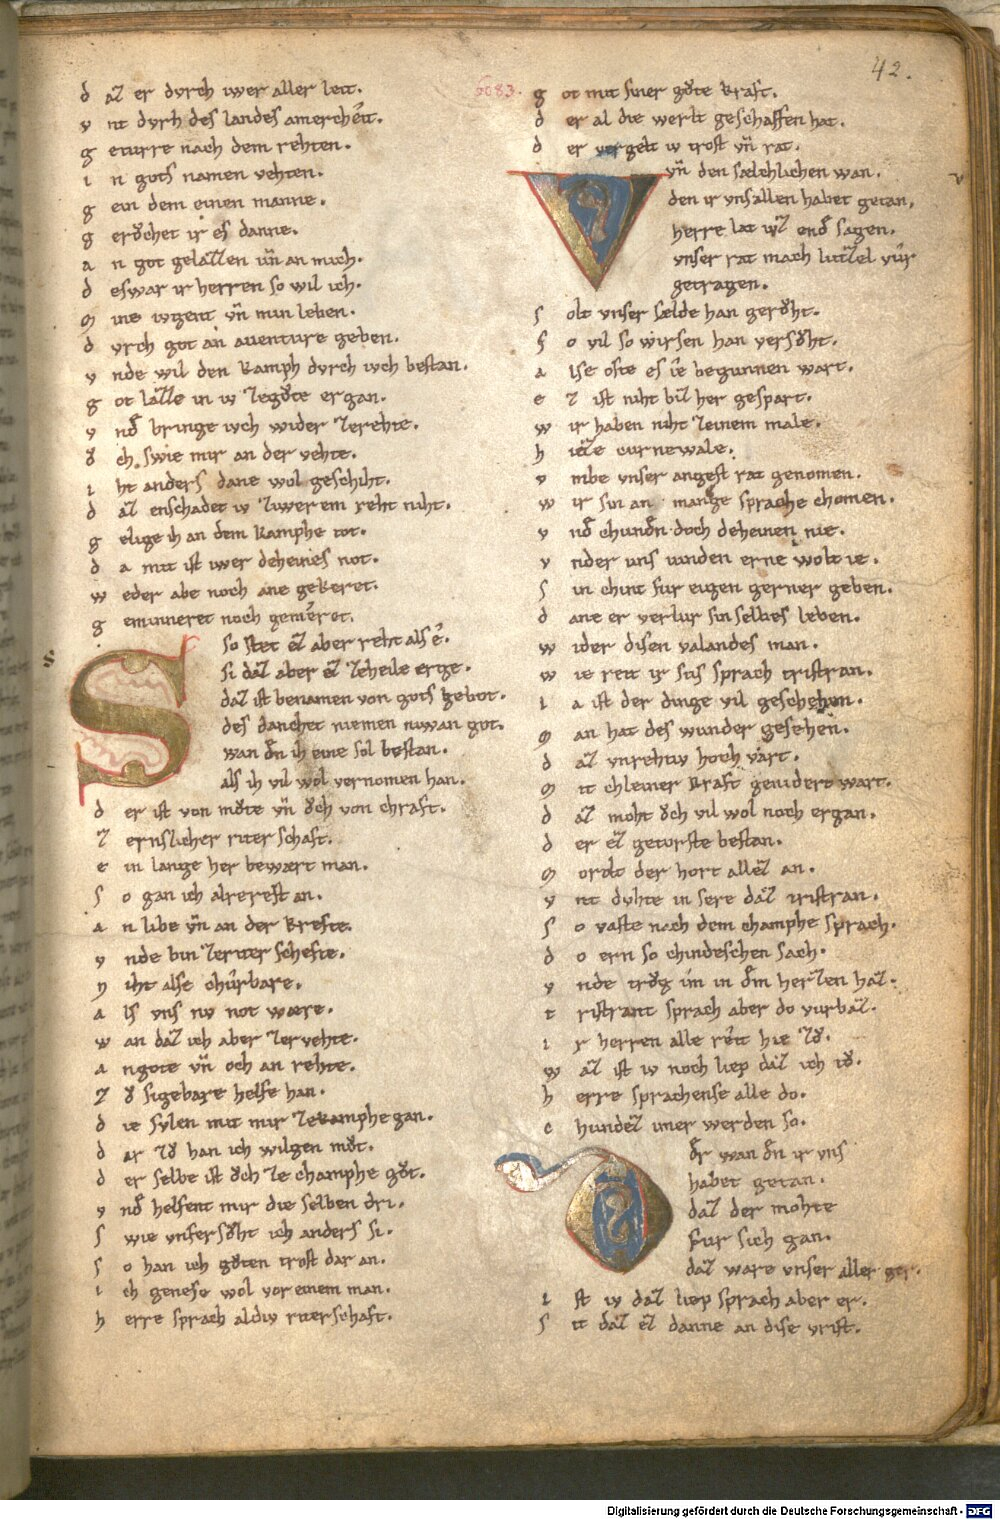 42.
6083.
d az er dvrch iwer aller leit.
v nt dvrh des landes amercheit.
g eturre nach dem rehten.
i n gots namen vehten.
g ein dem einen manne.
g erůchet ir es danne.
a n got gelazzen uñ an mich.
d eswar ir herren so wil ich.
m ine ivgent vñ min leben.
d vrch got an auenture geben.
v nde wil den kamph dvrch ivch bestan.
g ot lazze in iv zegůte ergan.
v nd̄ bringe ivch wider zerehte.
ǒ ch swie mir an der vehte.
i ht anders dane wol geschiht.
d az enschadet iv ziwerem reht niht.
g elige ih an dem kamphe tot.
d a mit ist iwer deheines not.
w eder abe noch ane gekeret.
g eminneret noch gemeret.
S so stet ez aber reht als e.
si daz aber ez zeheile erge.
daz ist benamen von gots gebot.
des danchet niemen niwan got.
wan dn̄ ih eine sol bestan.
als ih vil wol vernomen han.
d er ist von můte vñ ǒch von chraft.
z ernslicher riter schaft.
e in lange her bewært man.
s o gan ich alrerest an.
a n libe vñ an der krefte.
v nde bin zeriter schefte.
n iht alse churbare.
a ls vns nv not wære.
w an daz ich aber zervehte.
a ngote vñ och an rehte.
z ů sigebære helfe han.
d ie svlen mit mir zekamphe gan.
d ar zů han ich wilgen můt.
d er selbe ist ǒch ze champhe gůt.
v nd̄ helfent mir die selben dri.
s wie vnfersůht ich anders si.
s o han ich gůten trost dar an.
i ch genese wol vor einem man.
h erre sprach aldiv riterschaft.
g ot mit siner gůte kraft.
d er al die werlt geschaffen hat.
d er vergelt iv trost vñ rat.
V vñ den sælchlichen wan.
den ir vns allen habet getan,
herre lat ivz end̄ sagen.
vnser rat mach lutzzel vur
getragen.
s olt vnser sælde han gerůht.
s o vil so wir sen han versůht.
a lse ofte es ie begunnen wart.
e z ist niht biz her gespart.
w ir haben niht zeinem male.
h ieze curnewale.
v mbe vnser angest rat genomen.
w ir sin an mange sprache chomen.
v nd̄ chundn̄ doch deheinen nie.
v nder uns uinden erne wolt ie.
s in chint fur eigen gerner geben.
d ane er verlur sin selbes leben.
w ider disen valandes man.
w ie reit ir sus sprach tristran.
i a ist der dinge vil geschehen.
m an hat des wunder gesehen.
d az vnrehtiv hoch vart.
m it chleiner kraft genidert wart.
d az moht ǒch vil wol noch ergan.
d er ez getorste bestan.
m orolt der hort allez an.
v nt dvhte in sere daz tristran.
s o vaste nach dem champhe sprach.
d o ern so chindeschen sach.
v nde trůg im in dm̄ herzen haz.
t ristrant sprach aber do vurbaz.
i r herren alle reit hie zů.
w az ist iv noch liep daz ich tů.
h erre sprachense alle do.
c hundez imer werden so.
D ůr wan dn̄ ir vns
habet getan.
daz der mohte
fur sich gan.
daz ware vnser aller ger.
i st iv daz liep sprach aber er.
s it daz ez danne an dise vrist.
Digitalisierung gefördert durch die Deutsche Forschungsgemeinschaft - DFG